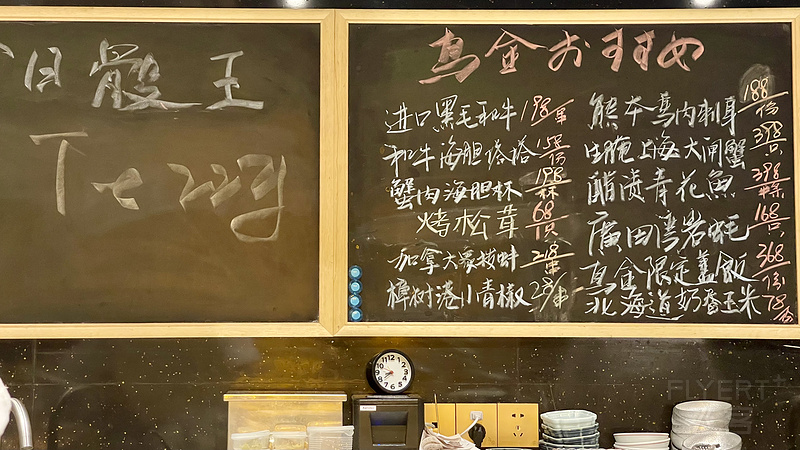 今日骰王
T 227
乌金おすすめ
进口黑毛和牛 198/串
和牛海胆塔塔 158/份
蟹肉海胆杯 198/杯
烤松茸 68/只
加拿大象拔蚌 218/串
樟树港小青椒 28/串
熊本马肉刺身 188/份
生腌上海大闸蟹 398/只
醋渍青花魚 398/条
廣田湾岩蚝 168/只
乌金限定蓋飯 368/份
北海道奶香玉米 78/份
FLYERT